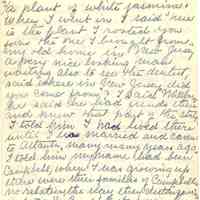 a plant of white jasmine.
When I went in I said "here
is the plant I rooted for you
from the one I brought from
my old home in New Jersey
a very nice looking man
waiting also to see the dentist,
said where in New Jersey did
you come from? I said
He said she had friends there
and knew that part of the state
I told him I had lived there
until I was married and came
to Atlanta, many many years ago.
I told him my name had been
Campbell, when I was growing up
there were three families of Campbells
no relation the way they